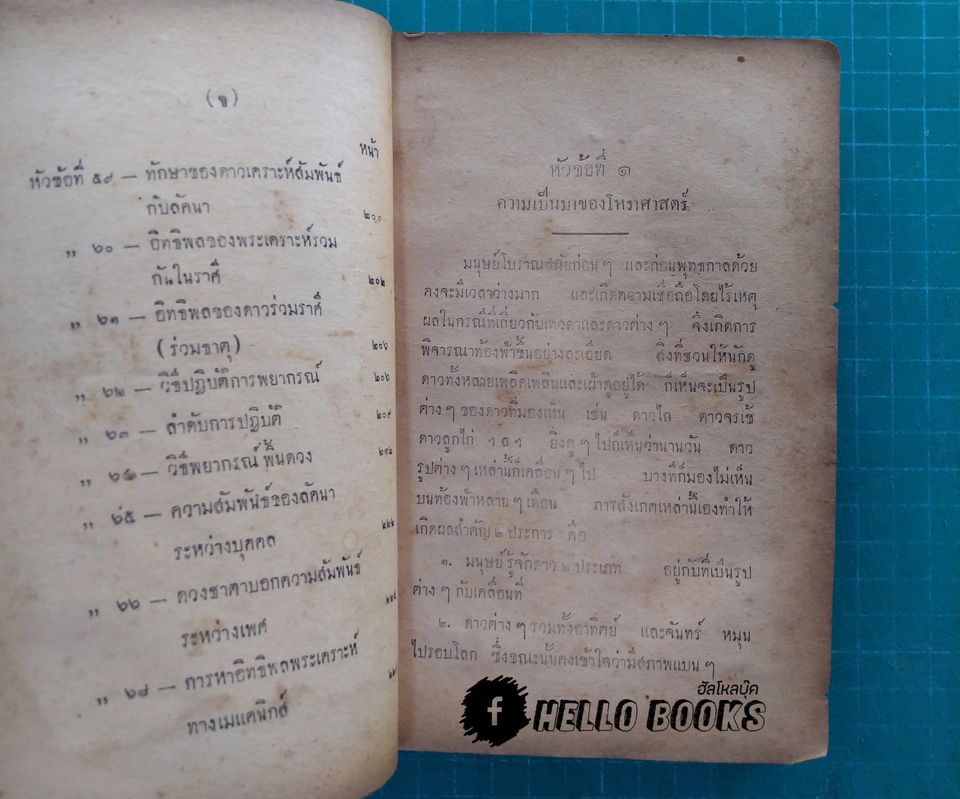 (ข)
หน้า
หัวข้อที่ ๕๙ — ทักษาของดาวเคราะห์สัมพันธ์
กับลัคนา ๒๐๐
„ ๖๐ — อิทธิพลของพระเคราะห์รวม
กันในราศี ๒๐๒
„ ๖๑ — อิทธิพลของดาวร่วมราศี
(ร่วมธาตุ) ๒๐๖
„ ๖๒ — วิธีปฏิบัติการพยากรณ์ ๒๐๖
„ ๖๓ — ลำดับการปฏิบัติ ๒๐๙
„ ๖๔ — วิธีพยากรณ์พื้นดวง
„ ๖๕ — ความสัมพันธ์ของลัคนา
ระหว่างบุคคล
„ ๖๖ — ดวงชาตาบอกความสัมพันธ์
ระหว่างเพศ
„ ๖๗ — การหาอิทธิพลพระเคราะห์
ทางเมแคนิกส์
หัวข้อที่ ๑
ความเป็นมาของโหราศาสตร์
มนุษย์โบราณสมัยก่อน ๆ และก่อนพุทธกาลด้วย
คงจะมีเวลาว่างมาก และเกิดความเชื่อถือโดยไร้เหตุ
ผลในกรณีที่เกี่ยวกับเทวดาและดาวต่าง ๆ จึงเกิดการ
พิจารณาท้องฟ้าขึ้นอย่างละเอียด สิ่งที่ชวนให้นักดู
ดาวทั้งหลายเพลิดเพลินและเฝ้าดูอยู่ได้ ก็เห็นจะเป็นรูป
ต่าง ๆ ของดาวที่มองเห็น เช่น ดาวไถ ดาวจรเข้
ดาวลูกไก่ ฯ ล ฯ ยิ่งดู ๆ ไปก็เห็นว่านานวัน ดาว
รูปต่าง ๆ เหล่านี้ก็เคลื่อน ๆ ไป บางทีก็มองไม่เห็น
บนท้องฟ้าหลาย ๆ เดือน การสังเกตเหล่านี้เองทำให้
เกิดผลสำคัญ ๒ ประการ คือ
๑. มนุษย์รู้จักดาว ๒ ประเภท อยู่กับที่เป็นรูป
ต่าง ๆ กับเคลื่อนที่
๒. ดาวต่าง ๆ รวมทั้งอาทิตย์ และจันทร์ หมุน
ไปรอบโลก ซึ่งขณะนั้นคงเข้าใจว่ามีสภาพแบน ๆ
ฮัลโหลบุ๊ค
f HELLO BOOKS